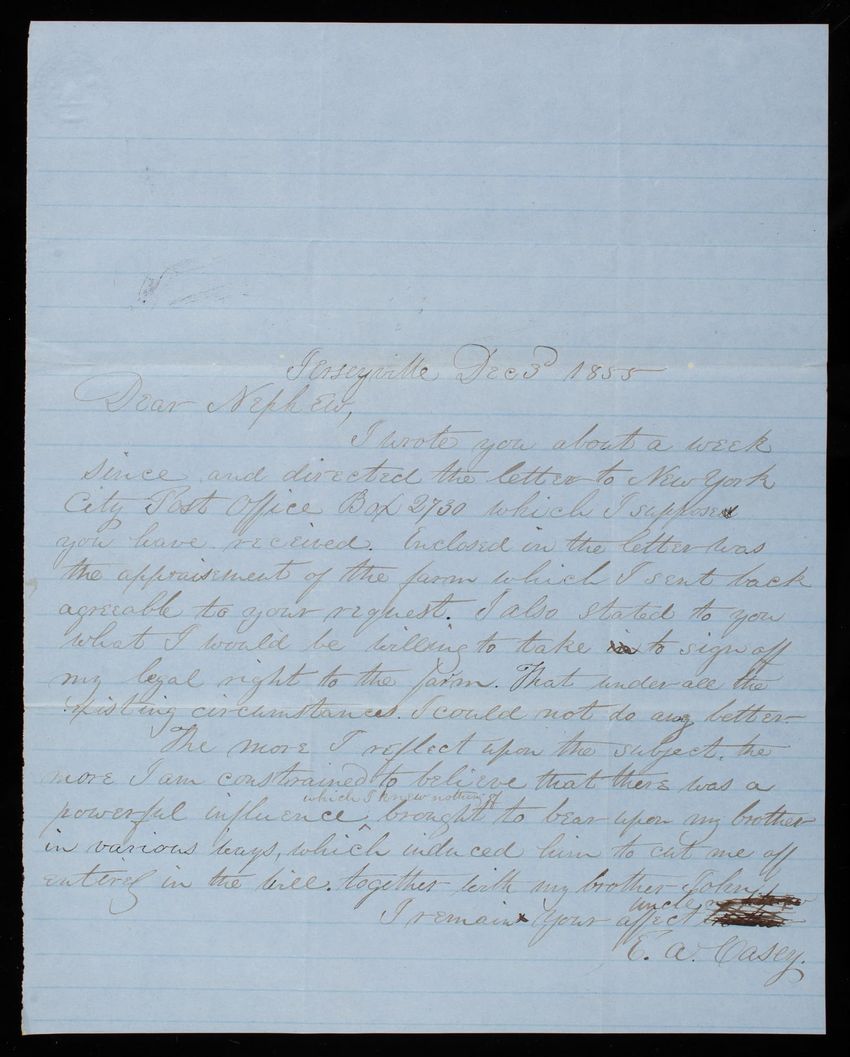 Jerseyville Dec 3d 1855
Dear Nephew,
I wrote you about a week
since and directed the letter to New York
City Post Office Box 2730 which I suppose
you have received. Enclosed in the letter was
the appraisement of the farm which I sent back
agreeable to your request. I also stated to you
what I would be willing to take to sign off
my legal right to the farm. That under all the
existing circumstances. I could not do any better
The more I reflect upon the subject, the
more I am constrained to believe that there was a
which I knew nothing of
powerful influence, ^ brought to bear upon my brother
in various ways, which induced him to cut me off
entirely in the will. together with my brother John,
I remain your affect uncle
E. A. Casey.